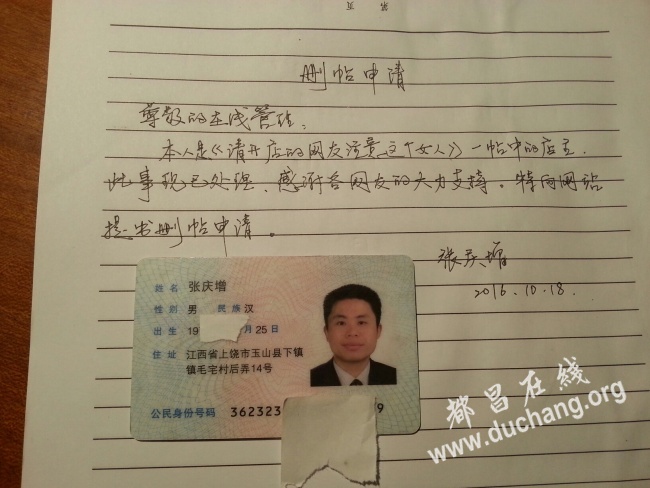 第 页
删帖申请
尊敬的在线管理:
本人是《请开店的网友注意这个女人》一帖中的店主.
此事现已处理.感谢各网友的大力支持。特向网站
提出删帖申请。
张庆增
2016.10.18.
姓名 张庆增
性别 男 民族 汉
出生 19 月 25 日
住址 江西省上饶市玉山县下镇
镇毛宅村后弄14号
公民身份号码 362323 9
都昌在线
www.duchang.org